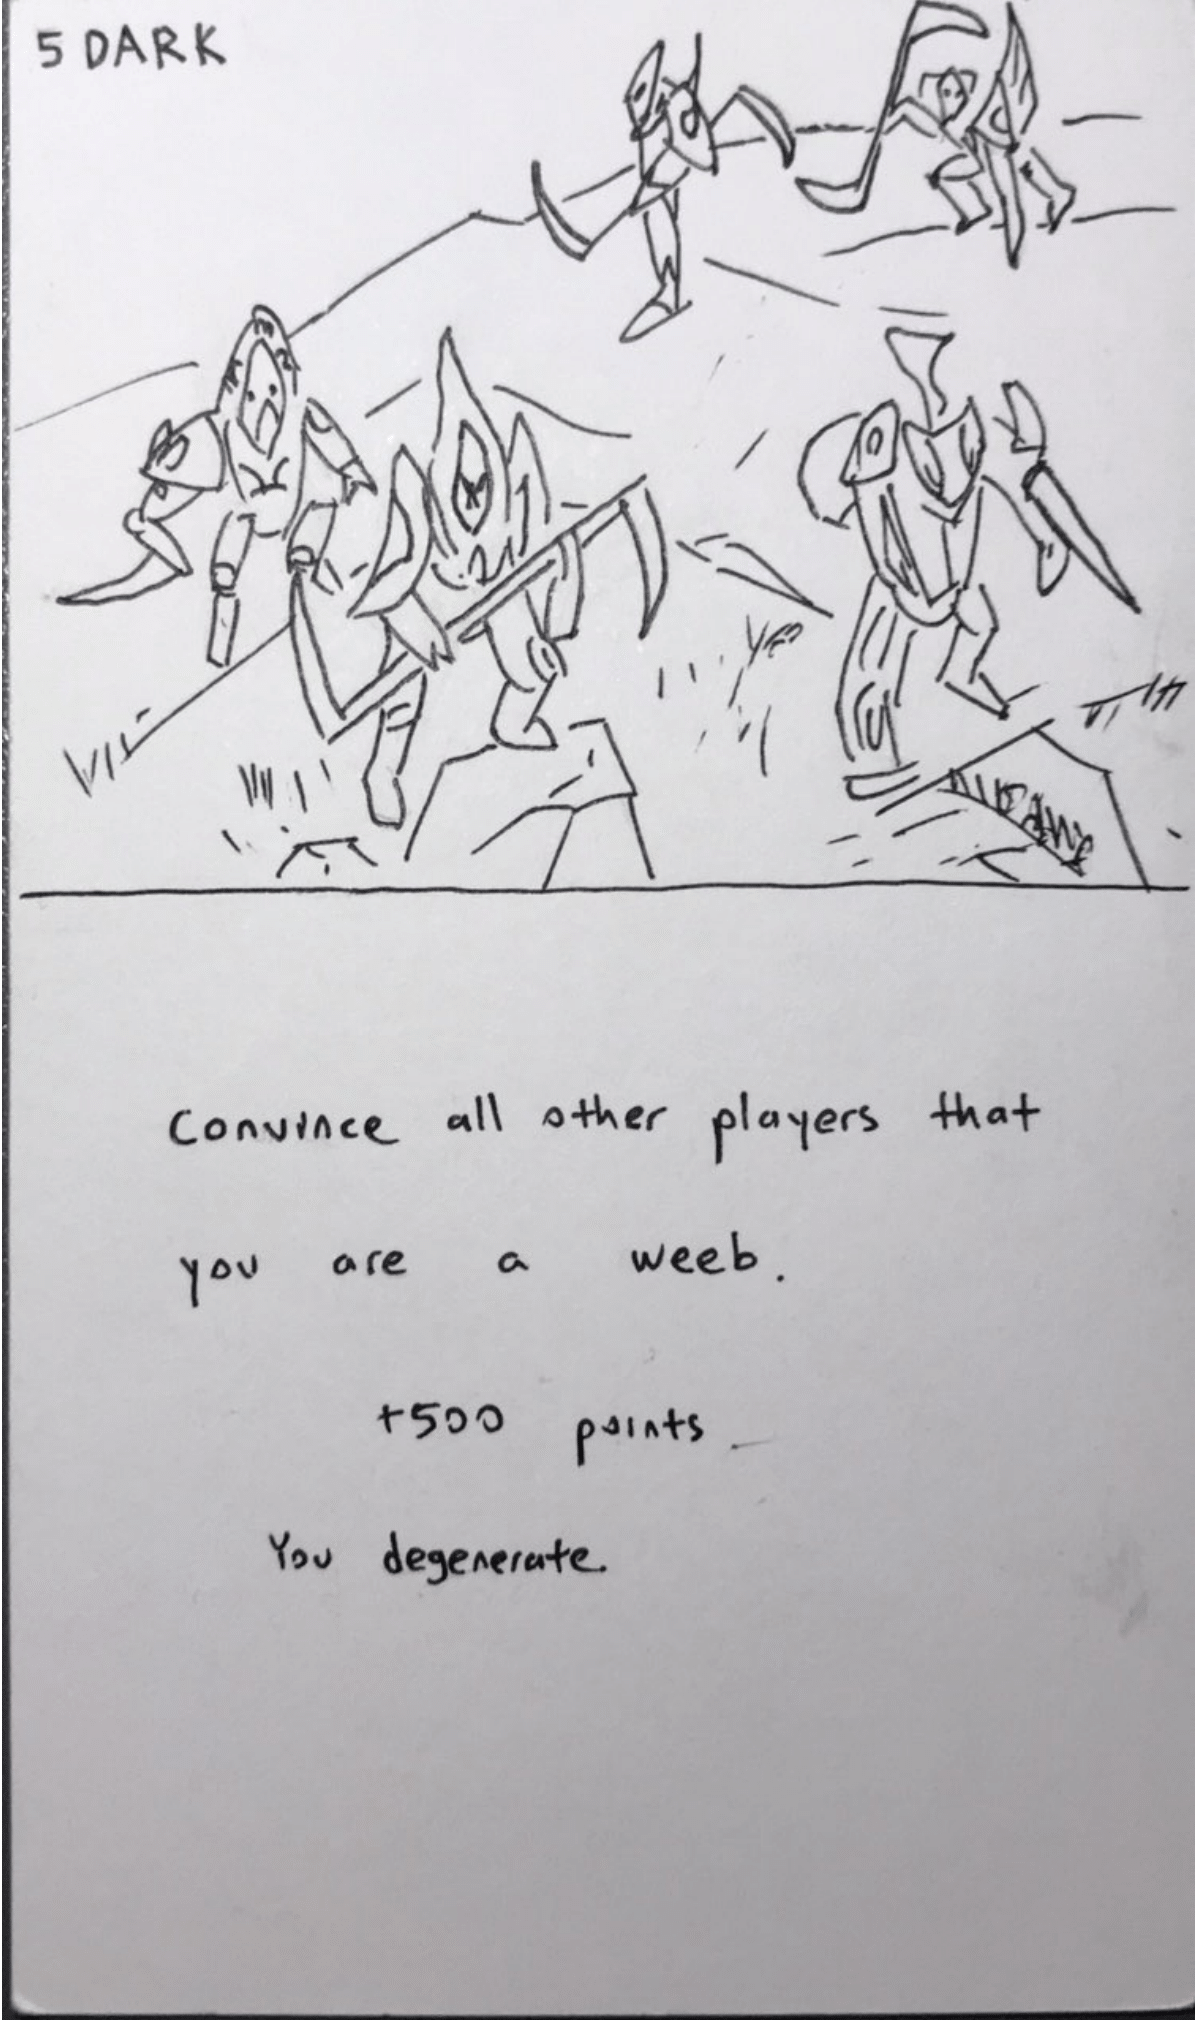 5 DARK
Convince all other players that
you are a weeb.
+500 points
You degenerate.